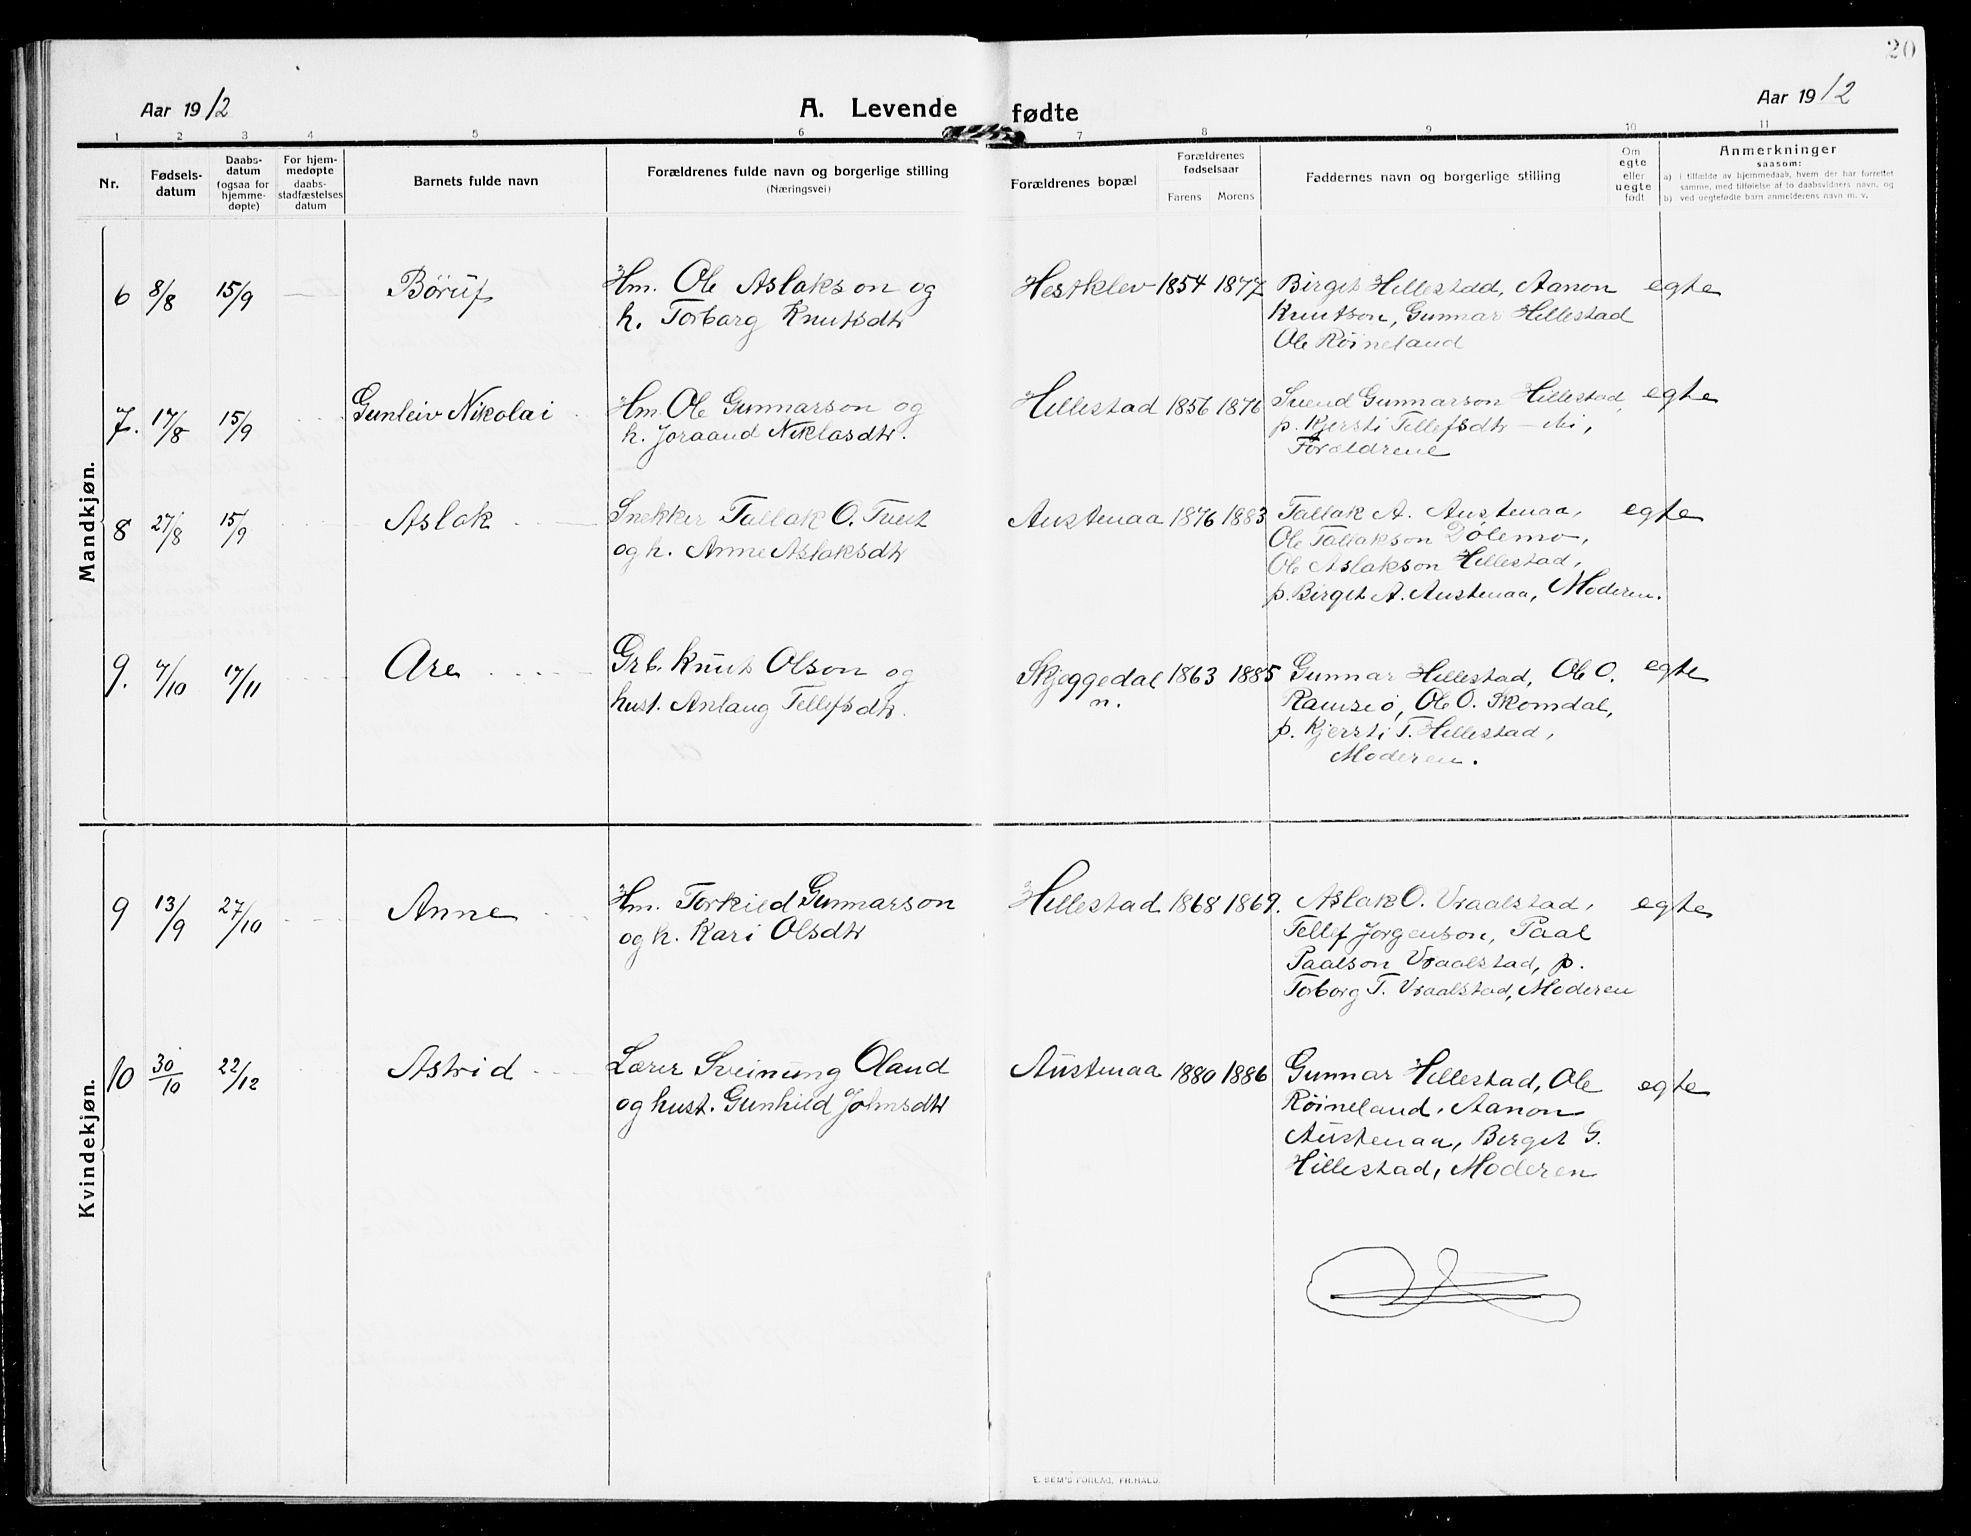 20
Aar 1912 A. Levende fødte Aar 1912
1 2 3 4 5 6 7 8 9 10 11
Nr. Fødsels-datum Daabs-datum (ogsaa for hjemme-døpte) For hjem-medøpte daabs-stadfæstelses datum Barnets fulde navn Forældrenes fulde navn og borgerlige stilling (Næringsvei) Forældrenes bopæl Forældrenes fødselsaar Farens Morens Faddernes navn og borgerlige stilling Om egte eller uegte født Anmerkninger saasom:
a) i tilfælde av hjemmedaab, hvem der har forrettet samme, med tilføielse af to daabsvidners navn, og
b) ved uegtefødte barn anmelderens navn m. v.
Mandkjøn.
6 8/8 15/9 — Børuf Hm. Ole Aslakson og Hestklev 1854 1877 Birget Hillestad, Aanon egte
h. Torborg Knutsdtr Knutson, Gunnar Hillestad
Ole Røineland
7. 17/8 15/9 Gunleiv Nikolai Hm. Ole Gunnarson og Hillestad 1856 1876 Svend Gunnarson Hillestad, egte
h. Joraand Niklasdtr. p. Kjersti Tellefsdtr
Forældrene
8 27/8 15/9 Aslak Snekker Tallak O. Tveit Austenaa 1876 1883 Tallak A. Austenaa, egte
og h. Anne Aslaksdtr Ole Tallakson Dølemo,
Ole Aslakson Hillestad,
p. Birget A. Austenaa, Moderen.
9. 7/10 17/11 Are Grb. Knut Olson og Skjeggedal 1863 1885 Gunnar Hillestad, Ole O. egte
hust. Anlaug Tellefsdtr. n. Ramseø, Ole O. Skomdal,
p. Kjersti T. Hillestad,
Moderen.
Kvindekjøn.
9 13/9 27/10 Anne Hm. Torkild Gunnarson Hillestad 1868 1869. Aslak O. Vraalstad, egte
og h. Kari Olsdtr Tellef Jorgenson, Paal
Paalson Vraalstad, p.
Torborg T. Vraalstad, Moderen
10 30/10 22/12 Astrid Lærer Sveinung Oland Austenaa 1880 1886 Gunnar Hillestad, Ole egte
og hust. Gunhild Johnsdtr Røineland, Aanon
Austenaa, Berget G.
Hillestad, Moderen
E. SEM'S FORLAG, FR.HALD.